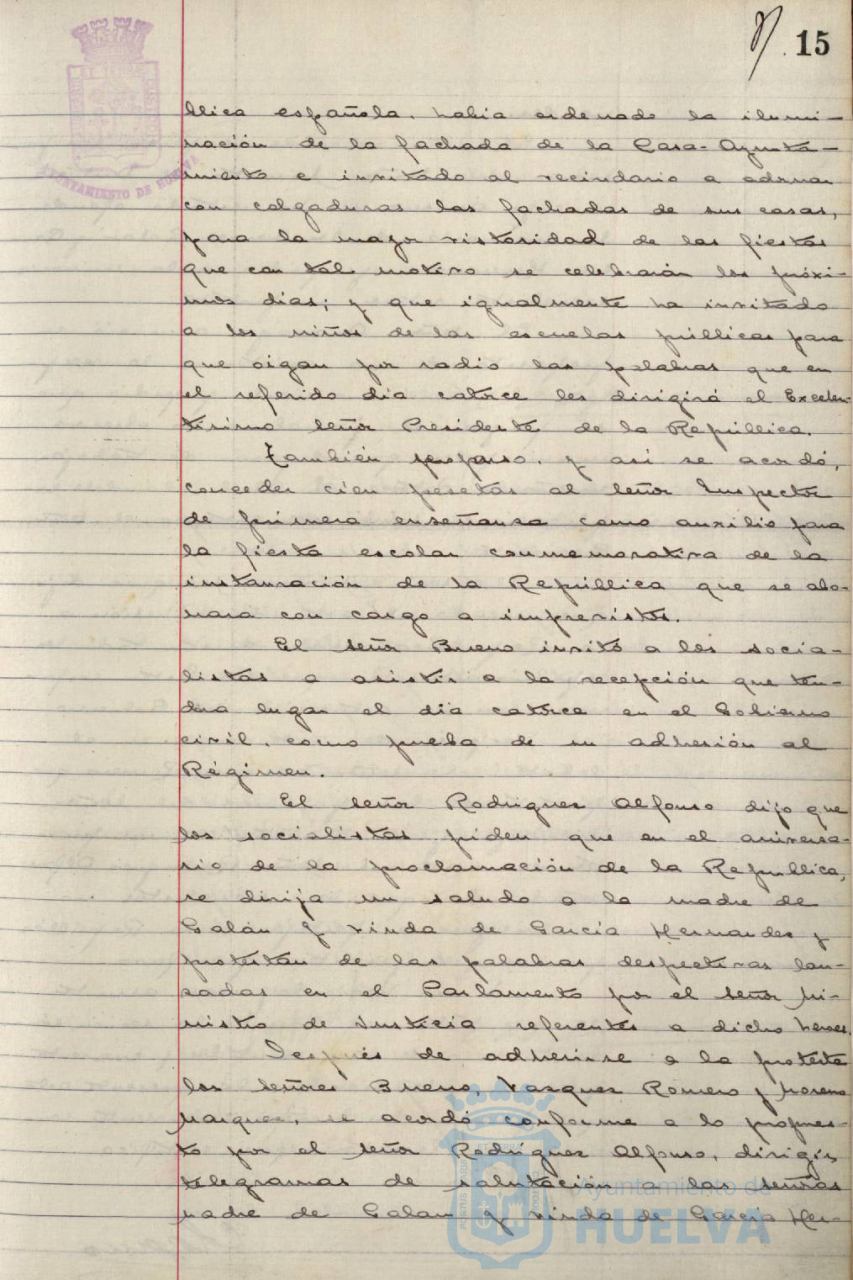 15
AYUNTAMIENTO DE HUELVA
blica española, había ordenado la ilumi-
nación de la fachada de la Casa-Ayunta-
miento e invitado al vecindario a adornar
con colgaduras las fachadas de sus casas,
para la mayor vistosidad de las fiestas
que con tal motivo se celebrarán los próxi-
mos días; y que igualmente ha invitado
a los niños de las escuelas públicas para
que oigan por radio las palabras que en
el referido día catorce les dirigirá el Excelen-
tísimo señor Presidente de la República.
También propuso, y así se acordó,
conceder cien pesetas al señor Inspector
de primera enseñanza como auxilio para
la fiesta escolar conmemorativa de la
instauración de la República que se abo-
nara con cargo a imprevistos.
El señor Bueno invitó a los socia-
listas a asistir a la recepción que ten-
drá lugar el día catorce en el Gobierno
civil, como prueba de su adhesión al
Régimen.
El señor Rodríguez Alfonso dijo que
los socialistas piden que en el aniversa-
rio de la proclamación de la República,
se dirija un saludo a la madre de
Galán y viuda de García Hernandez y
protestan de las palabras despectivas lan-
zadas en el Parlamento por el señor Mi-
nistro de Justicia referentes a dicho heroes.
Después de adherirse a la protesta
los señores Bueno, Vazquez Romero y Moreno
Marquez, se acordó conforme a lo propues-
to por el señor Rodríguez Alfonso, dirigir
telegramas de salutación a las señoras
madre de Galan y viuda de García Her-
Ayuntamiento de
HUELVA